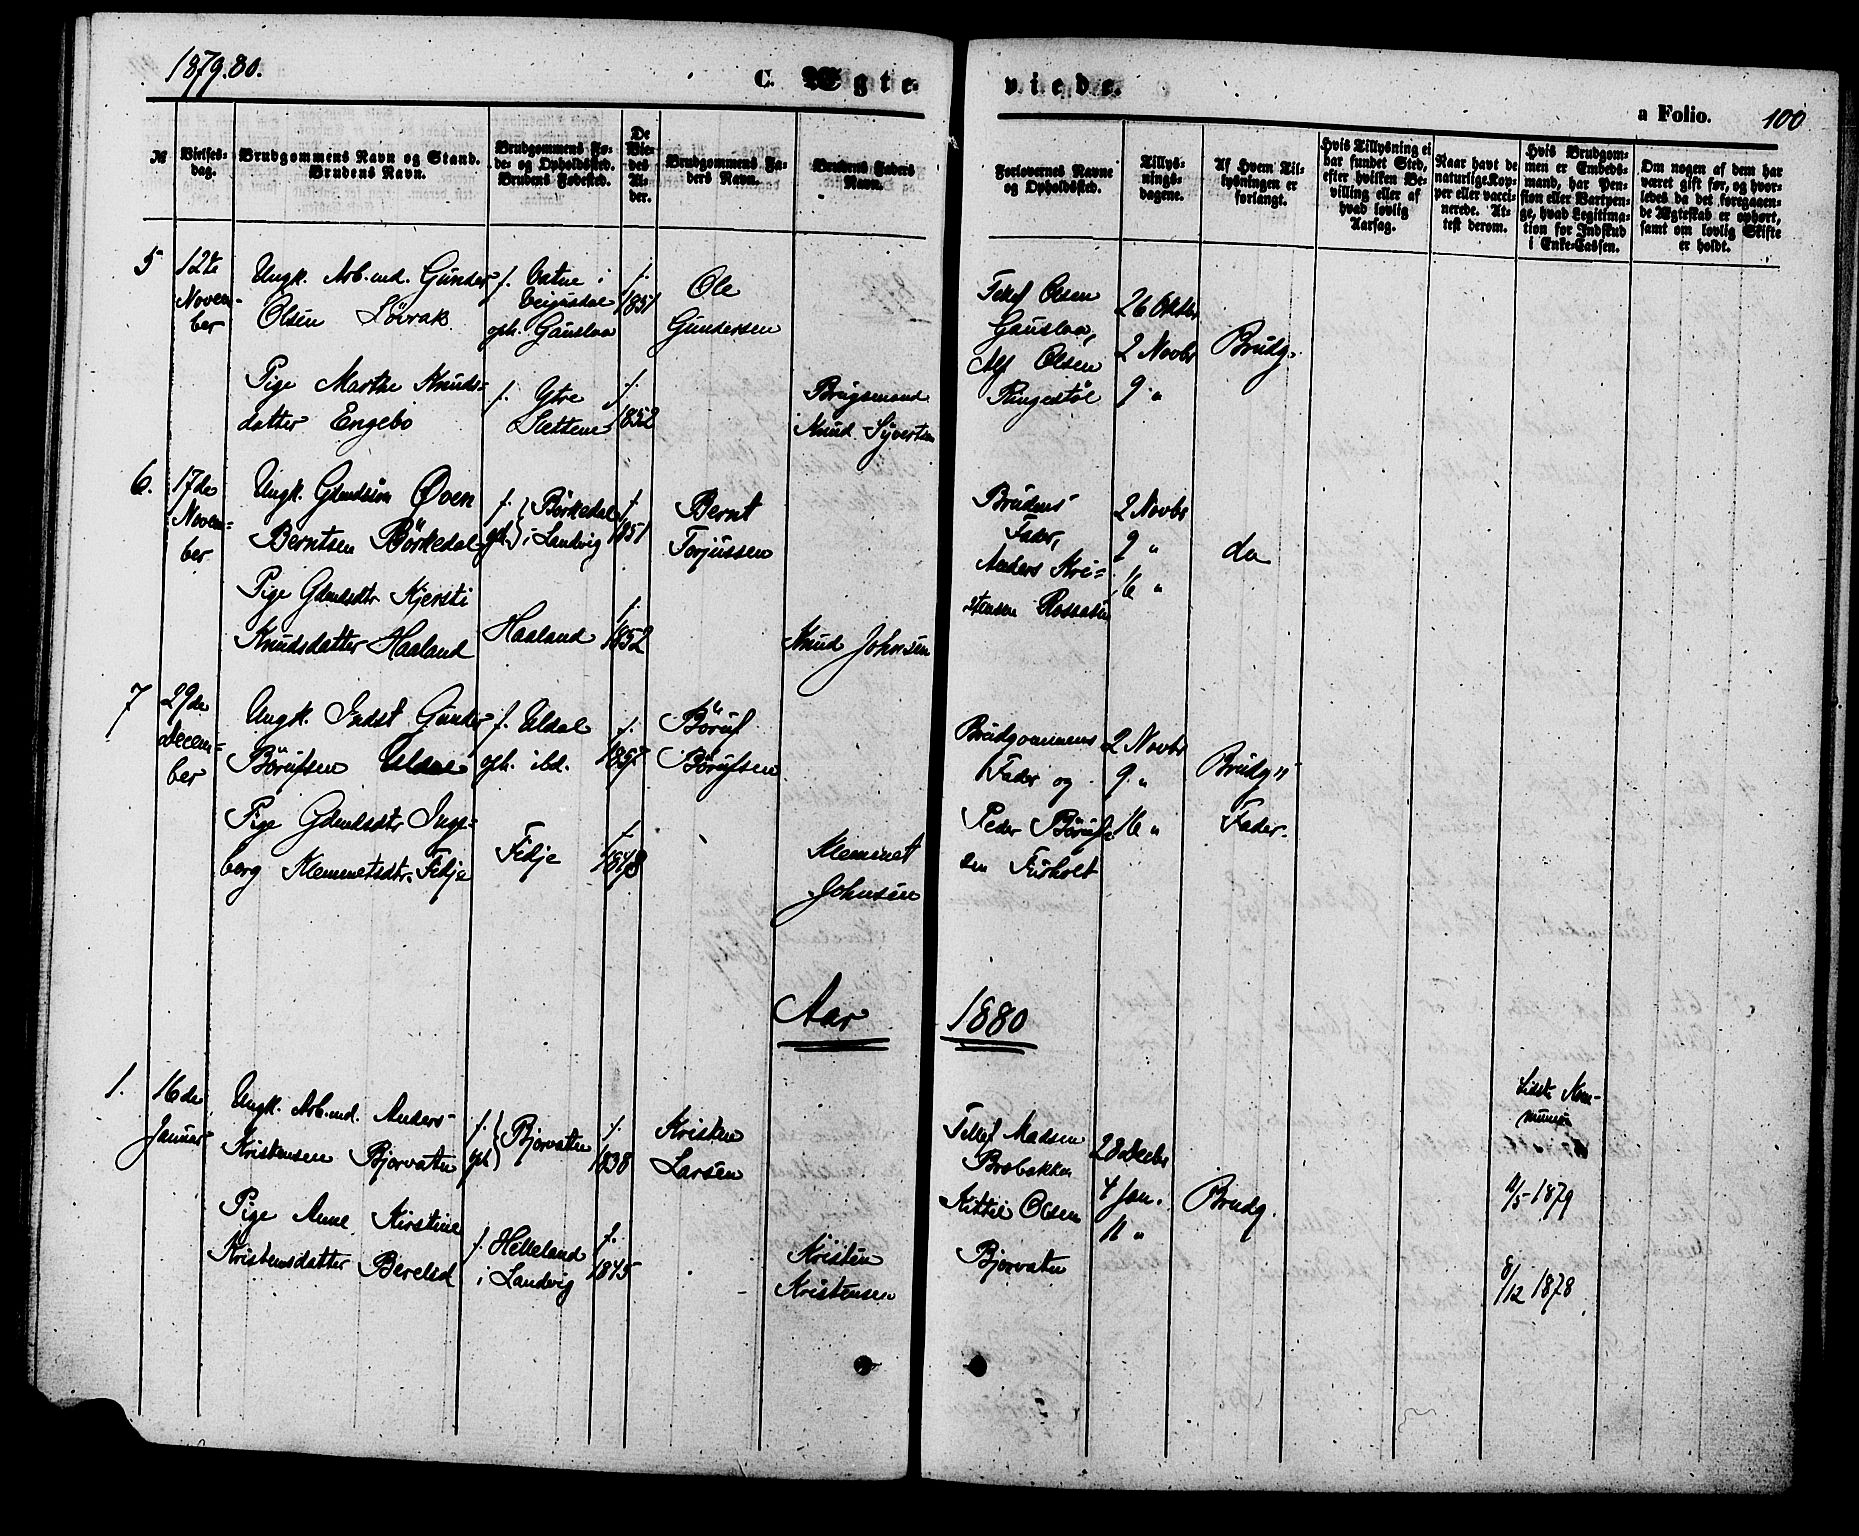 1879.80.
C. Ægte
viede.
a Folio. 100
№
Vielses-
dag.
Brudgommens Navn og Stand.
Brudens Navn.
Brudgommens Fø-
de- og Opholdssted.
Brudens Fødested.
De
Vie-
des
Al-
der.
Brudgommens Fa-
ders Navn.
Brudens Faders
Navn.
Forlovernes Navne
og Opholdssted.
Tillys-
nings-
dagene.
Af Hvem Til-
lysningen er
forlangt.
Hvis Tillysning ei
har fundet Sted,
efter hvilken Be-
villing eller af
hvad lovlig
Aarsag.
Naar havt de
naturlige Kop-
per eller vacci-
nerede. At-
test derom.
Hvis Brudgom-
men er Embeds-
mand, har Pen-
sion eller Vartpen-
ge, hvad Legitima-
tion for Indskud
i Enke-Cassen.
Om nogen af dem har
været gift før, og hvor-
ledes da det foregaaen-
de Ægteskab er ophørt,
samt om lovlig Skifte
er holdt.
5
12te
Novem-
ber
Ungk. Arb.md. Gunder
Olsen Lövrak
f. Vatne i
opl. Gauslaa
f.
1851
Ole
Gundersen
Tellef Olsen
Gauslaa,
Alf Olsen
Ringedtöl
26 Oktbr
2 Novbr
9 "
Brudg.
Pige Marthe Knuds-
datter Engebo
f. Ytre
Slettene
f.
1852
Brugsmand
Knud Syvertsen
6.
17de
Novem-
ber
Ungk. Gdmdssön Øven
Berntsen Börkedal
f. } Börkedal
opl. } i Landvig
f.
1851
Bernt
Torjussen
Brudens
Fader,
Anders Kri-
stensen Rossaasen
2 Novbr
9 "
16 "
do
Pige Gdmdsdtr Kjersti
Knudsdatter Haaland
Haaland
f.
1852
Knud Johnsen
7
29de
Decem-
ber
Ungk. Indst Gunder
Börufsen Uldal
f. Uldal
oph. ibd.
f.
Böruf
Börufsen
Brudgommens
Fader og
Peder Börufs-
sen Furholt
2 Novbr
9 "
16 "
Brudg"
Fader.
Pige Gdmdsdtr Inge-
borg Klemmetsdtr. Fidje
Fidje
f.
1848
Klemmet
Johnsen
Aar 1880
1.
16de
Januar
Ungk. Arb.md. Anders
Kristensen Bjorvatn
f. } Bjorvatn
opl. }
f.
1838
Kristen
Larsen
Tellef Madsen
Brobakken
Kittil Olsen
Bjorvatn
28 Decbr
4 Jan.
11 "
Brudg.
Sidste Kom-
munion
4/5 1879
Pige Anne Kirstine
Kristensdatter Berelid
f. Helleland
i Landvig
f.
1845
Kristen
Kristensen
8/12 1878